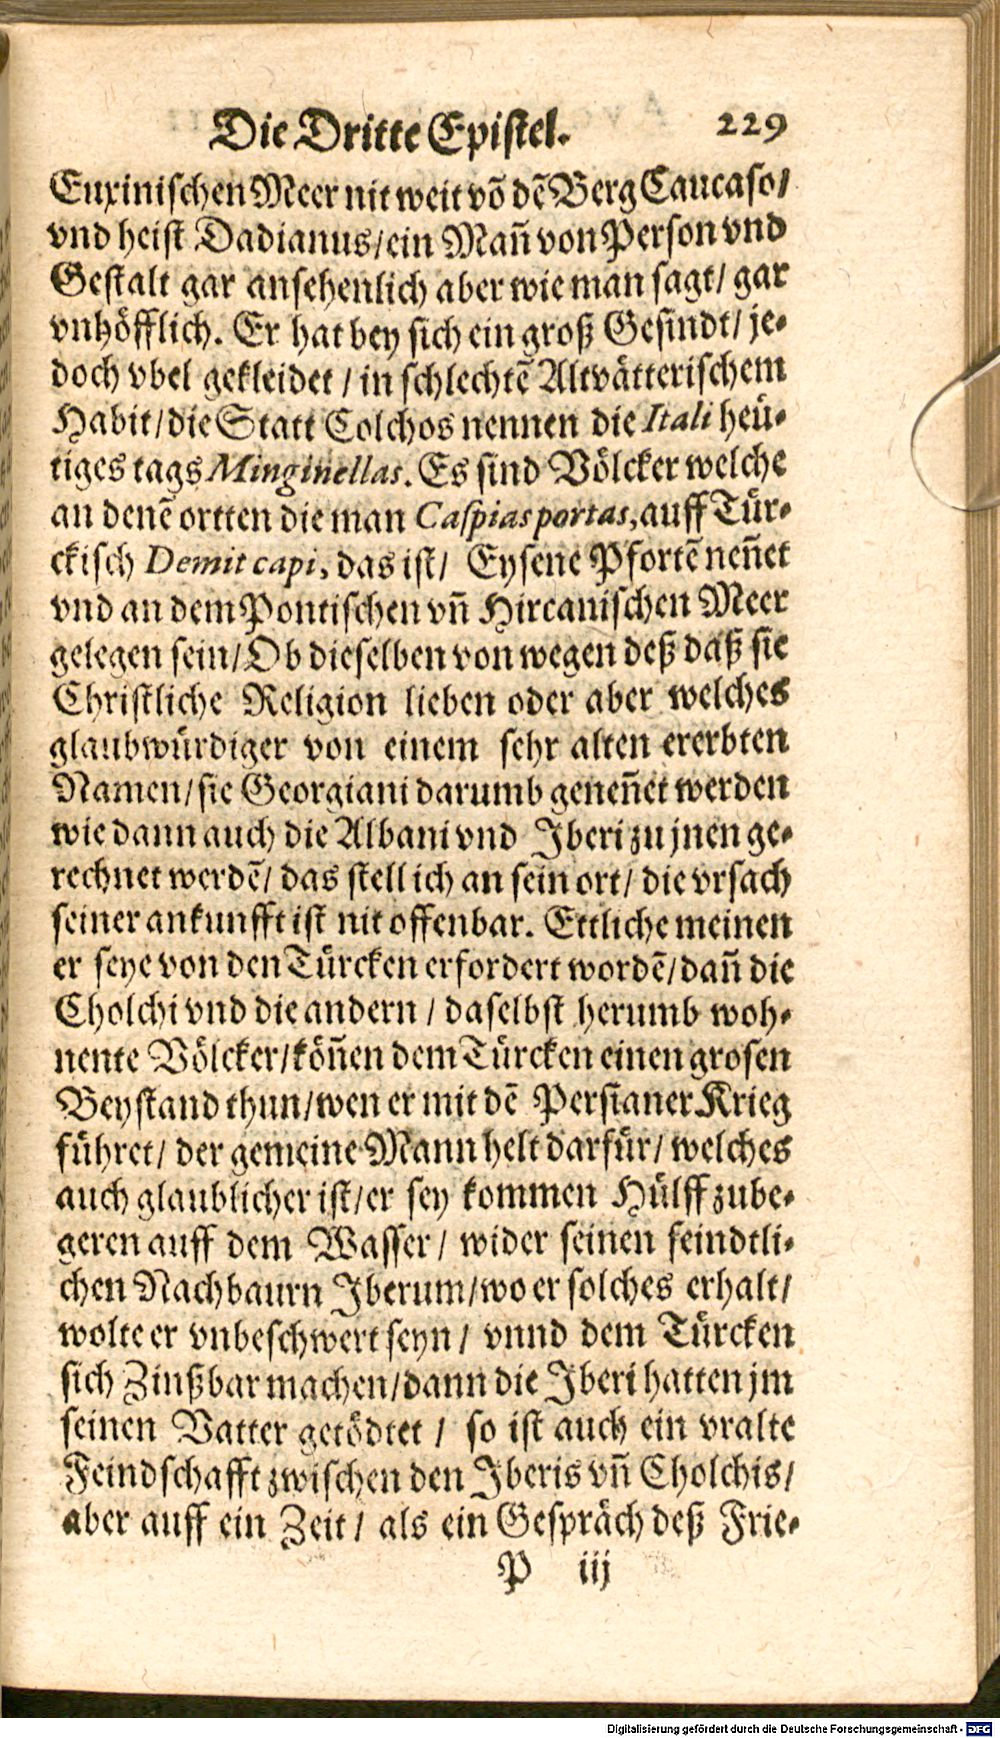 Die Dritte Epistel. 229
Euxinischen Meer nit weit võ dẽ Berg Caucaso/
vnd heist Dadianus/ein Mañ von Person vnd
Gestalt gar ansehenlich aber wie man sagt/ gar
vnhöfflich. Er hat bey sich ein groß Gesindt/ je-
doch vbel gekleidet / in schlechtẽ Altvätterischem
Habit/die Statt Colchos nennen die Itali heü-
tiges tags Minginellas. Es sind Völcker welche
an denẽ ortten die man Caspias portas, auff Tür-
ckisch Demit capi, das ist/ Eysene Pfortẽ neñet
vnd an dem Pontischen vñ Hircanischen Meer
gelegen sein/Ob dieselben von wegen deß daß sie
Christliche Religion lieben oder aber welches
glaubwürdiger von einem sehr alten ererbten
Namen/sie Georgiani darumb geneñet werden
wie dann auch die Albani vnd Iberi zu jnen ge-
rechnet werdẽ/ das stell ich an sein ort/ die vrsach
seiner ankunfft ist nit offenbar. Ettliche meinen
er seye von den Türcken erfordert wordẽ/dañ die
Cholchi vnd die andern / daselbst herumb woh-
nente Völcker/köñen dem Türcken einen grosen
Beystand thun/wen er mit dẽ Persianer Krieg
führet/ der gemeine Mann helt darfür/ welches
auch glaublicher ist/er sey kommen Hülff zube-
geren auff dem Wasser/ wider seinen feindtli-
chen Nachbaurn Iberum/wo er solches erhalt/
wolte er vnbeschwert seyn/ vnnd dem Türcken
sich Zinßbar machen/dann die Iberi hatten jm
seinen Vatter getödtet / so ist auch ein vralte
Feindschafft zwischen den Iberis vñ Cholchis/
aber auff ein Zeit/ als ein Gespräch deß Frie-
P iij
Digitalisierung gefördert durch die Deutsche Forschungsgemeinschaft - DFG